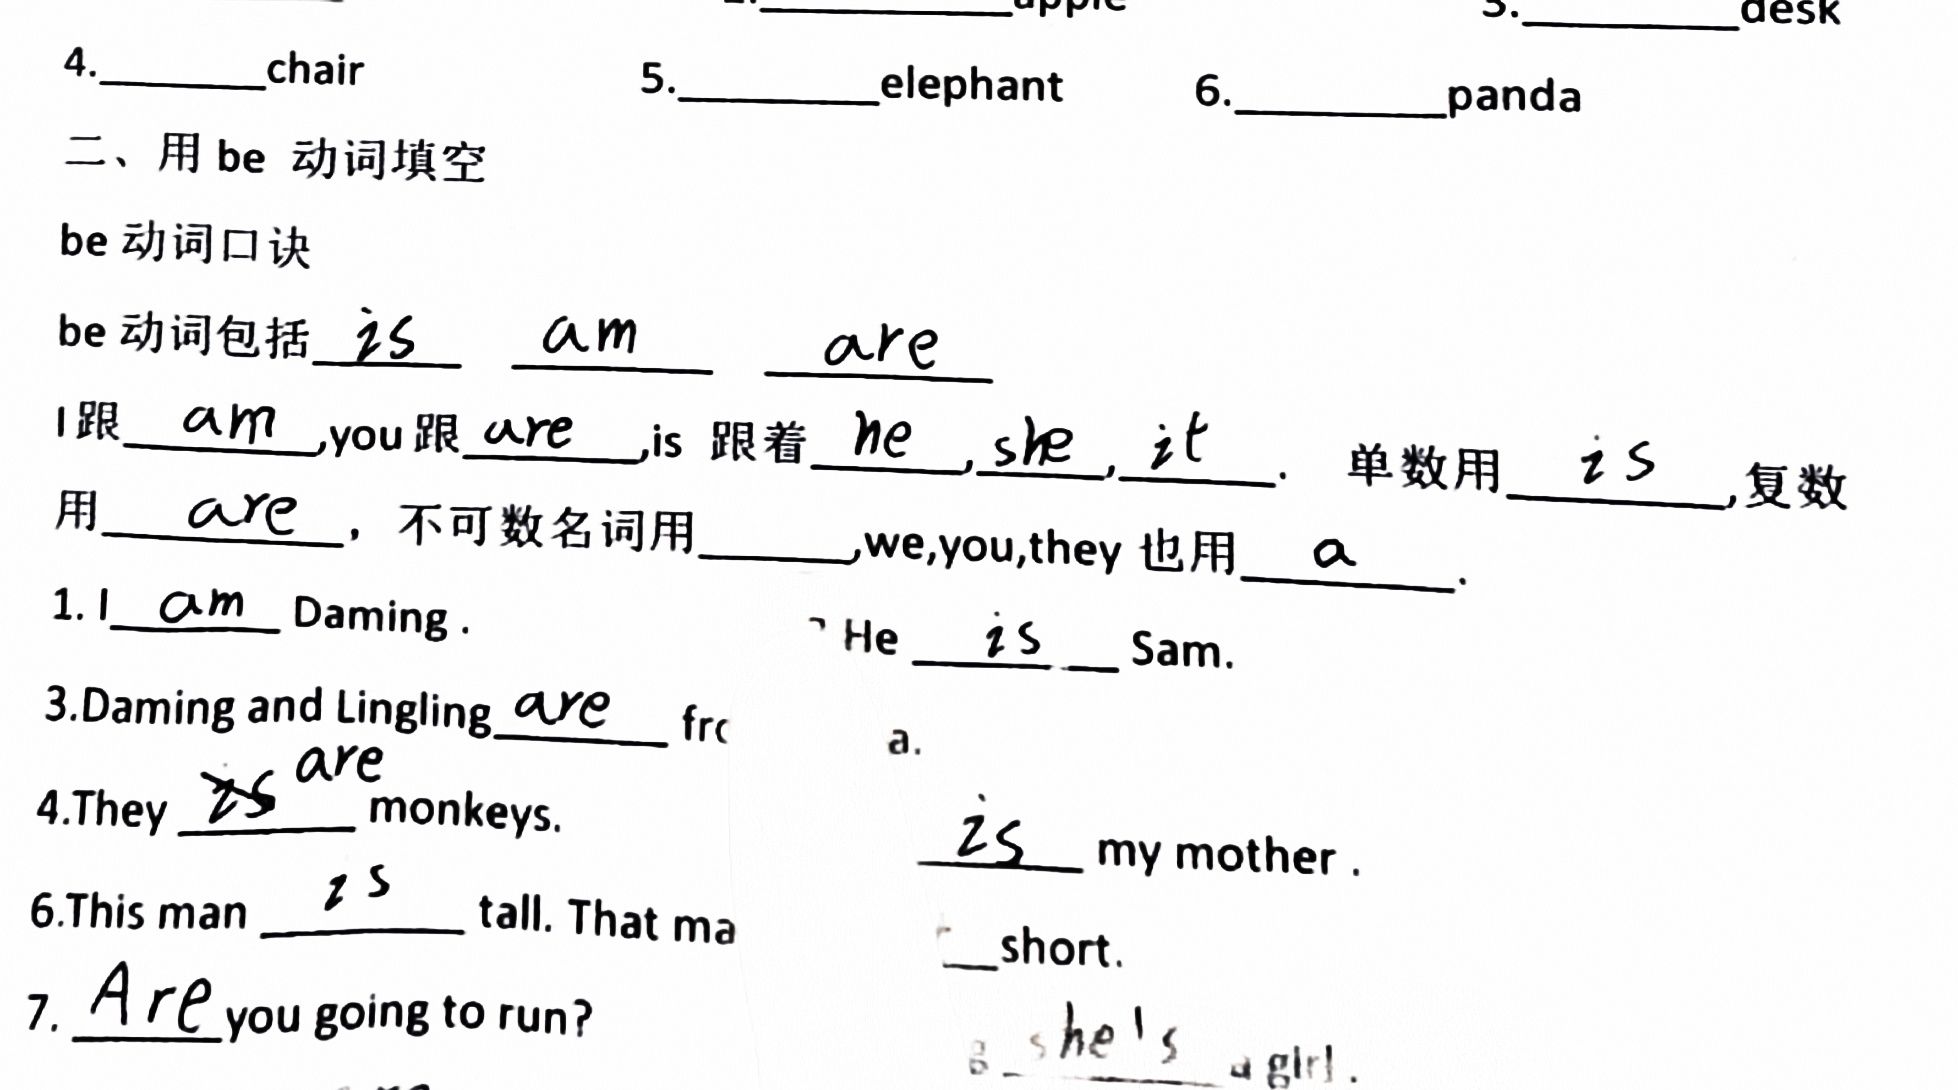 apple 3.________desk
4.________chair 5.________elephant 6.________panda
二、用 be 动词填空
be 动词口诀
be 动词包括 is am are
I 跟 am ,you 跟 are ,is 跟着 he , she , it . 单数用 is ,复数
用 are ，不可数名词用______,we,you,they 也用 a .
1. I am Daming . He is Sam.
3.Daming and Lingling are a.
4.They are monkeys. is my mother .
6.This man is tall. That short.
7. Are you going to run? she's a girl .